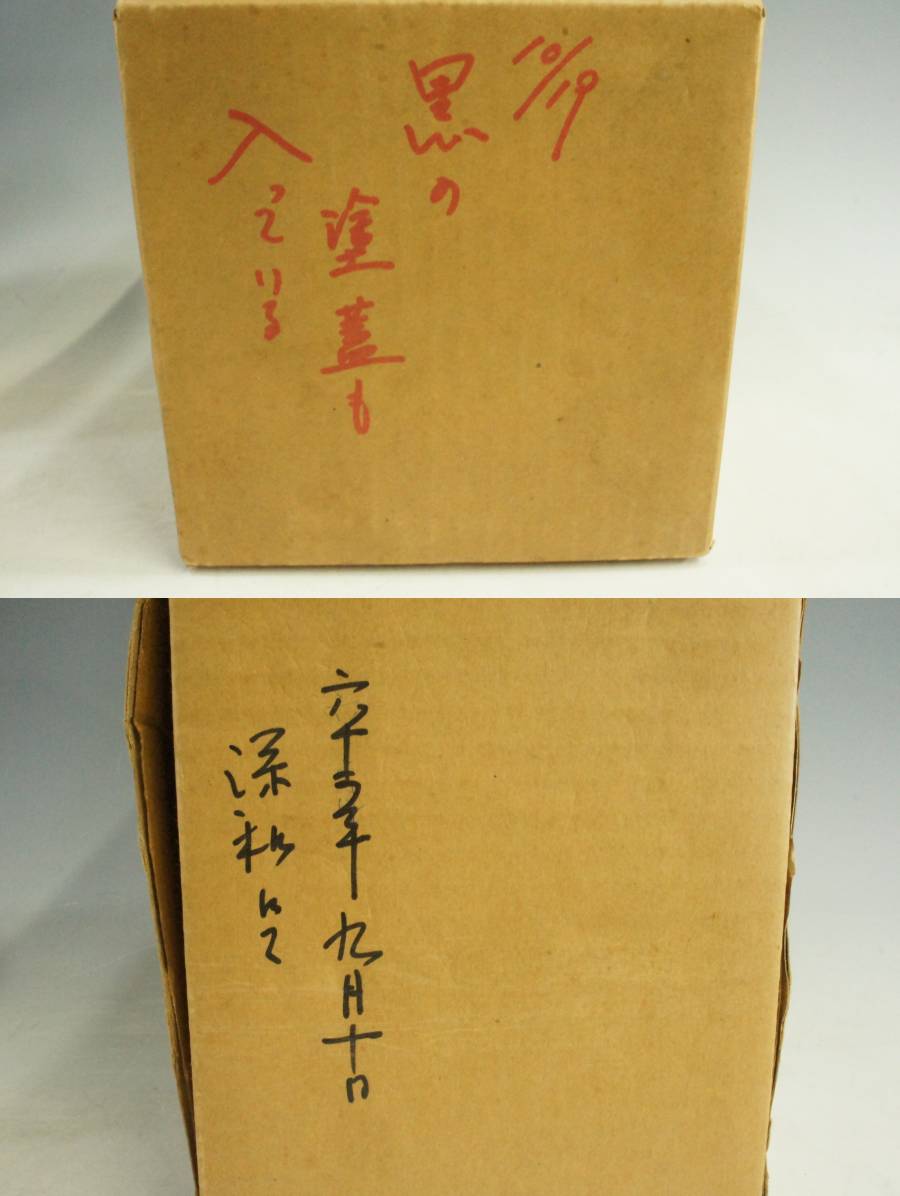 10/19
黒の
塗蓋も
入っている
六十三年九月十日
深私にて